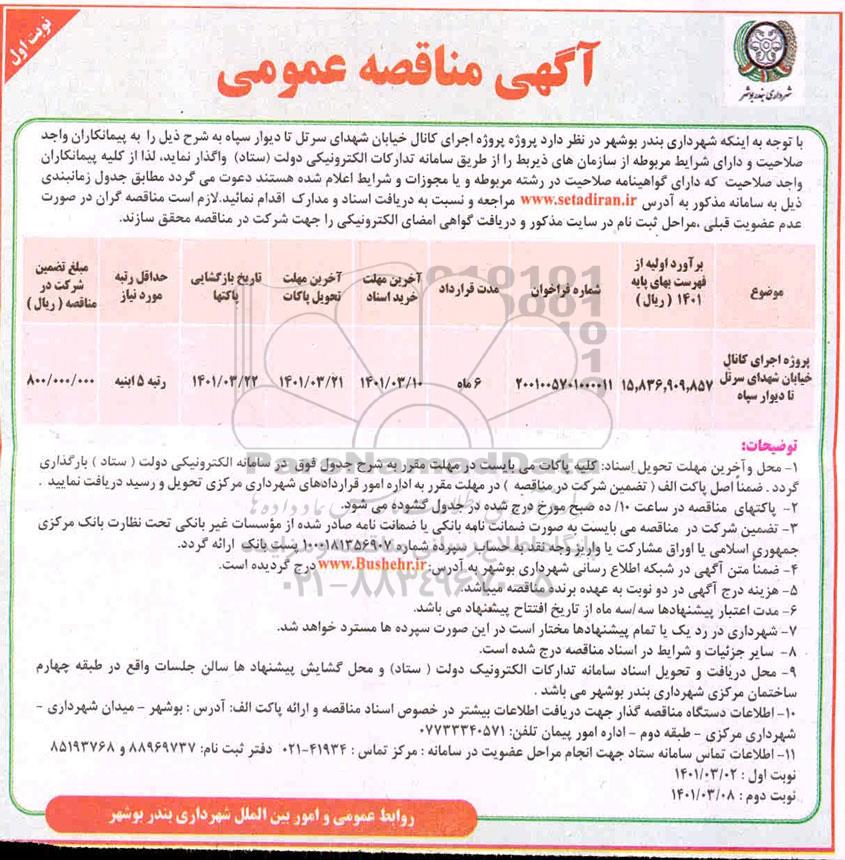 نوبت اول
شهرداری بندر بوشهر
آگهی مناقصه عمومی
با توجه به اینکه شهرداری بندر بوشهر در نظر دارد پروژه پروژه اجرای کانال خیابان شهدای سرتل تا دیوار سپاه به شرح ذیل را به پیمانکاران واجد
صلاحیت و دارای شرایط مربوطه از سازمان های ذیربط را از طریق سامانه تدارکات الکترونیکی دولت (ستاد) واگذار نماید، لذا از کلیه پیمانکاران
واجد صلاحیت که دارای گواهینامه صلاحیت در رشته مربوطه و یا مجوزات و شرایط اعلام شده هستند دعوت می گردد مطابق جدول زمانبندی
ذیل به سامانه مذکور به آدرس www.setadiran.ir مراجعه و نسبت به دریافت اسناد و مدارک اقدام نمائید.لازم است مناقصه گران در صورت
عدم عضویت قبلی ،مراحل ثبت نام در سایت مذکور و دریافت گواهی امضای الکترونیکی را جهت شرکت در مناقصه محقق سازند.
موضوع
برآورد اولیه از
فهرست بهای پایه
۱۴۰۱ ( ریال )
شماره فراخوان
مدت قرارداد
آخرین مهلت
خرید اسناد
آخرین مهلت
تحویل پاکات
تاریخ بازگشایی
پاکتها
حداقل رتبه
مورد نیاز
مبلغ تضمین
شرکت در
مناقصه ( ریال )
پروژه اجرای کانال
خیابان شهدای سرتل
تا دیوار سپاه
۱۵,۸۳۶,۹۰۹,۸۵۷
۲۰۰۱۰۰۵۷۰۱۰۰۰۰۱۱
۶ ماه
۱۴۰۱/۰۳/۱۰
۱۴۰۱/۰۳/۲۱
۱۴۰۱/۰۳/۲۲
رتبه ۵ ابنیه
۸۰۰/۰۰۰/۰۰۰
توضیحات:
۱- محل وآخرین مهلت تحویل اسناد: کلیه پاکات می بایست در مهلت مقرر به شرح جدول فوق در سامانه الکترونیکی دولت ( ستاد ) بارگذاری
گردد . ضمناً اصل پاکت الف ( تضمین شرکت در مناقصه ) در مهلت مقرر به اداره امور قراردادهای شهرداری مرکزی تحویل و رسید دریافت نمایید .
۲- پاکتهای مناقصه در ساعت ۱۰/ ده صبح مورخ درج شده در جدول گشوده می شود.
۳- تضمین شرکت در مناقصه می بایست به صورت ضمانت نامه بانکی یا ضمانت نامه صادر شده از مؤسسات غیر بانکی تحت نظارت بانک مرکزی
جمهوری اسلامی یا اوراق مشارکت یا واریز وجه نقد به حساب سپرده شماره ۱۰۰۰۱۸۱۳۵۶۹۰۷ پست بانک ارائه گردد.
۴- ضمناً متن آگهی در شبکه اطلاع رسانی شهرداری بوشهر به آدرس: www.Bushehr.ir درج گردیده است.
۵- هزینه درج آگهی در دو نوبت به عهده برنده مناقصه میباشد.
۶- مدت اعتبار پیشنهادها سه/سه ماه از تاریخ افتتاح پیشنهاد می باشد.
۷- شهرداری در رد یک یا تمام پیشنهادها مختار است در این صورت سپرده ها مسترد خواهد شد.
۸- سایر جزئیات و شرایط در اسناد مناقصه درج شده است.
۹- محل دریافت و تحویل اسناد سامانه تدارکات الکترونیک دولت ( ستاد) و محل گشایش پیشنهاد ها سالن جلسات واقع در طبقه چهارم
ساختمان مرکزی شهرداری بندر بوشهر می باشد .
۱۰- اطلاعات دستگاه مناقصه گذار جهت دریافت اطلاعات بیشتر در خصوص اسناد مناقصه و ارائه پاکت الف: آدرس : بوشهر - میدان شهرداری -
شهرداری مرکزی - طبقه دوم - اداره امور پیمان تلفن: ۰۷۷۳۳۳۴۰۵۷۱
۱۱- اطلاعات تماس سامانه ستاد جهت انجام مراحل عضویت در سامانه : مرکز تماس : ۴۱۹۳۴-۰۲۱ دفتر ثبت نام: ۸۸۹۶۹۷۳۷ و ۸۵۱۹۳۷۶۸
نوبت اول : ۱۴۰۱/۰۳/۰۲
نوبت دوم : ۱۴۰۱/۰۳/۰۸
روابط عمومی و امور بین الملل شهرداری بندر بوشهر
ParsNamadData
۰۲۱-۸۸۳۴۹۶۷۰-۵